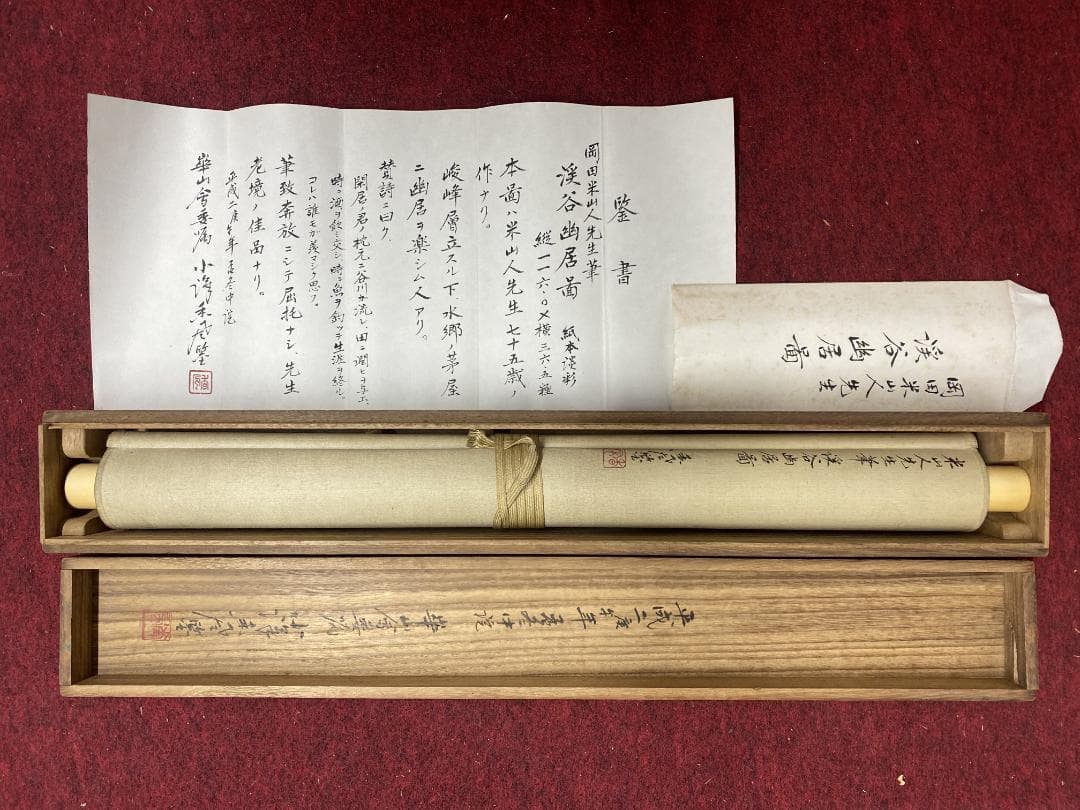 鑒書
岡田米山人先生筆
溪谷幽居畵
紙本淡彩
縦一一六.〇×横三六.五糎
本畵ハ米山人先生七十五歳ノ
作ナリ。
峻峰層立スル下、水郷ノ茅屋
ニ幽居ヲ楽シム人アリ。
賛詩ニ曰ク、
閑居ノ君ノ枕元ニ谷川ガ流レ、田ニ潤ヒヲ与エ、
時ニ酒ヲ飲ミ交シ、時ニ魚ヲ釣ッテ生涯ヲ終ル。
コレハ誰モガ羨マシク思フ。
筆致奔放ニシテ屈托ナシ、先生
老境ノ佳品ナリ。
平成二庚午年孟冬中浣
崋山會委嘱 小澤 鑒
岡田米山人先生
溪谷幽居畵
米山人先生筆溪谷幽居圖
平成二庚午年孟冬中浣
崋山會委嘱